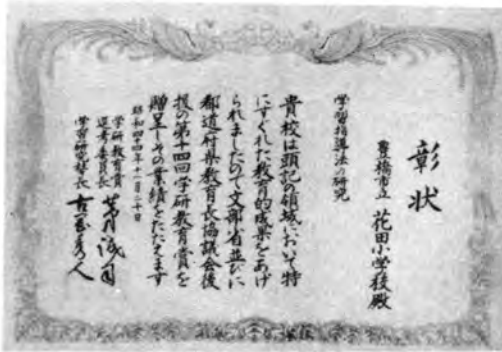 彰状
豊橋市立 花田小学校殿
学習指導法の研究
貴校は頭記の領域において特
にすぐれた教育的成果をあげ
られましたので文部省並びに
都道府県教育長協議会後
援の第十四回学研教育賞を
贈呈しその業績をたたえます
昭和四十四年十一月二十日
学研教育賞
選考委員長 茅誠司
学習研究社社長 古岡秀人